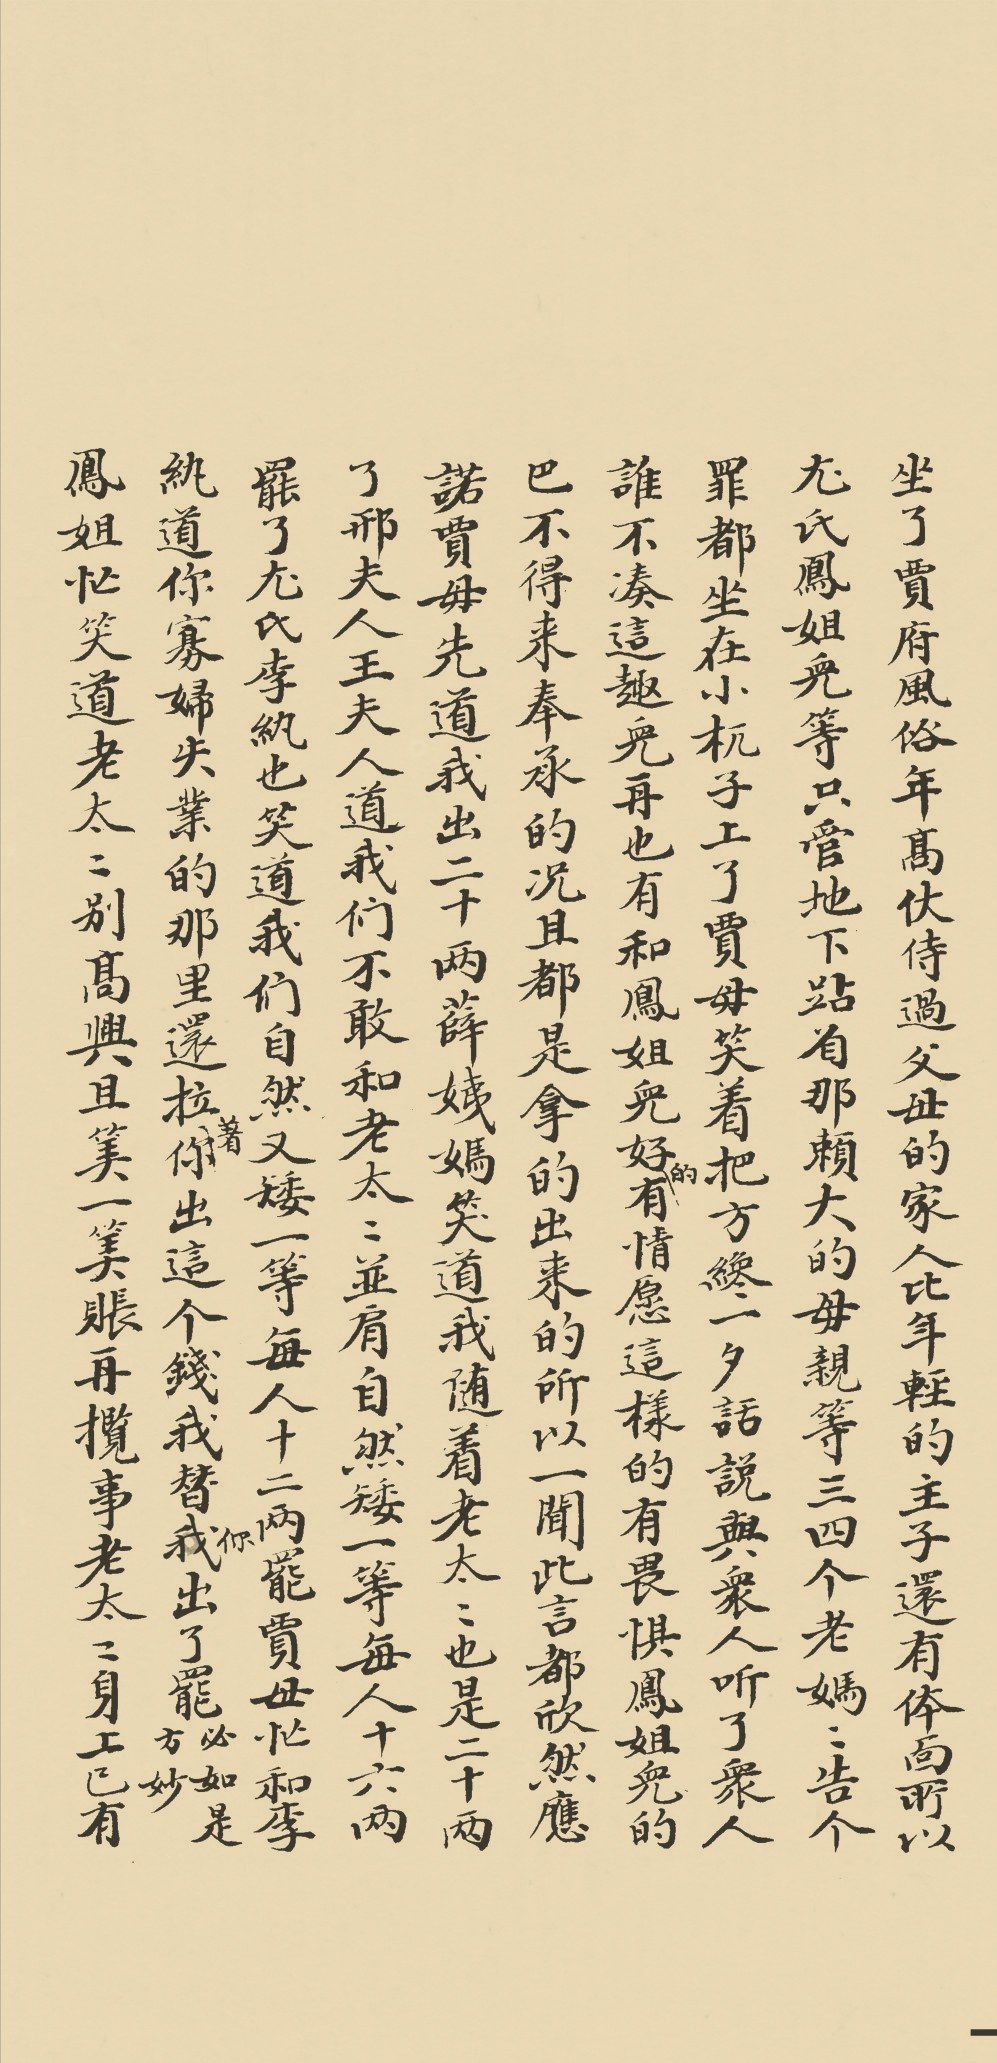 坐了賈府風俗年髙伏侍過父母的家人比年輕的主子還有体面所以
尤氏鳳姐兒等只管地下站着那賴大的母親等三四个老媽〻告个
罪都坐在小杌子上了賈母笑着把方纔一夕話説與衆人听了衆人
誰不凑這趣兒再也有和鳳姐兒好的有情愿這樣的有畏惧鳳姐兒的
巴不得来奉承的况且都是拿的出来的所以一聞此言都欣然應
諾賈母先道我出二十两薛姨媽笑道我随着老太〻也是二十两
了邢夫人王夫人道我们不敢和老太〻並肩自然矮一等每人十六两
罷了尤氏李紈也笑道我们自然又矮一等每人十二两罷賈母忙和李
紈道你寡婦失業的那里還拉著你出這个錢我替你我出了罷必如是方妙
鳳姐忙笑道老太〻别髙興且筭一筭賬再攬事老太〻身上已有